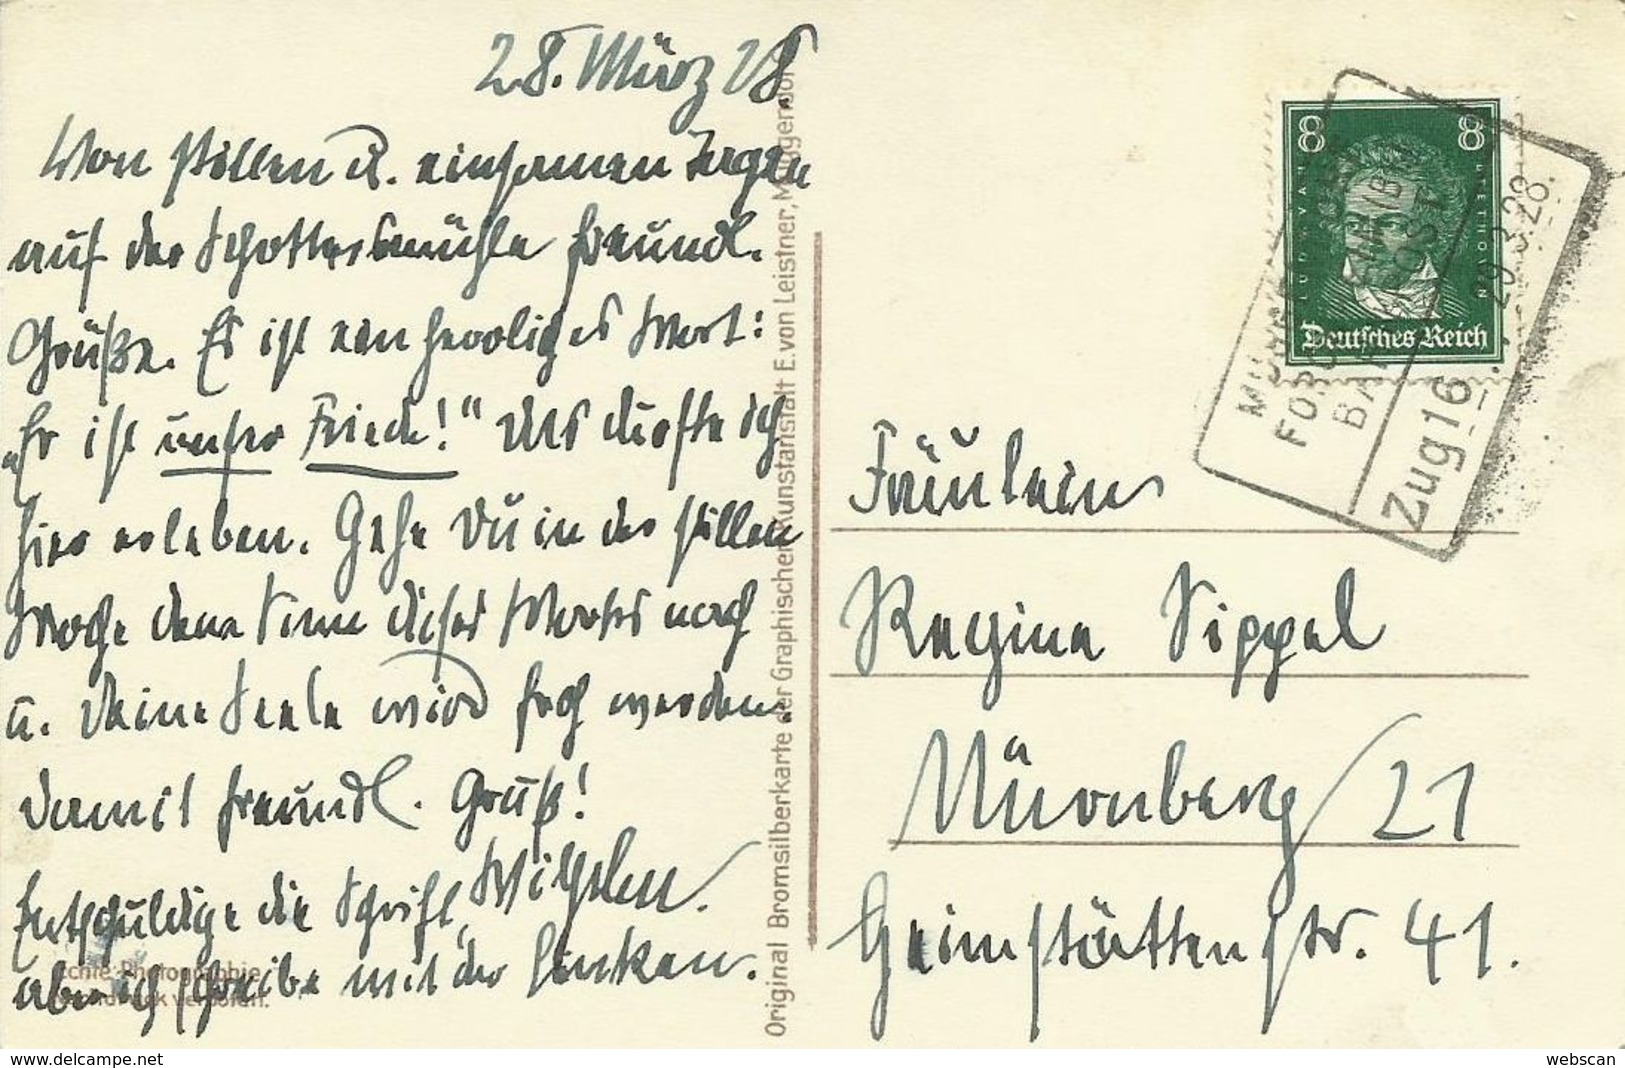 28. März 28.
Von stillen u. einsamen Tagen
auf der Schottersmühle freundl.
Grüße. Es ist ein herrliches Wort:
„Er ist unser Friede!" Das durfte ich
hier erleben. Gehe Du in der stillen
Woche dem Sinn dieses Wortes nach
u. Deine Seele wird froh werden.
Damit freundl. Gruß!
Wilhelm.
Entschuldige die Schrift,
aber ich schreibe mit der linken.
Echte Photographie
verboten.
Original Bromsilberkarte der Graphischen Kunstanstalt E. von Leistner, Muggendorf
8 8
LUD. VAN BEETHOVEN
Deutsches Reich
BAHNPOST
Zug 16
29.3.28.
Fräulein
Regina Sippel
Nürnberg / 21
Heimstättenstr. 41.
www.delcampe.net
webscan